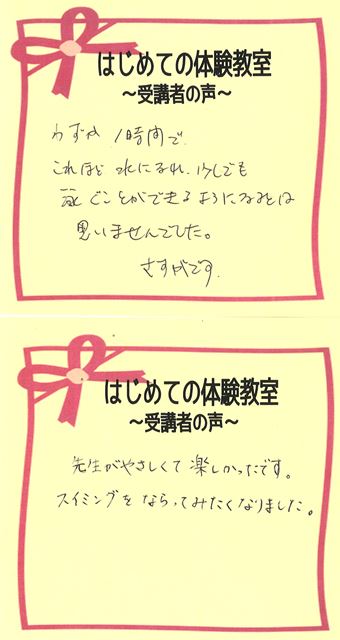 はじめての体験教室
～受講者の声～
わずか 1時間で
これほど 水になれ、少しでも
泳ぐことができるようになるとは
思いませんでした。
さすがです。
はじめての体験教室
～受講者の声～
先生がやさしくて楽しかったです。
スイミングをならってみたくなりました。